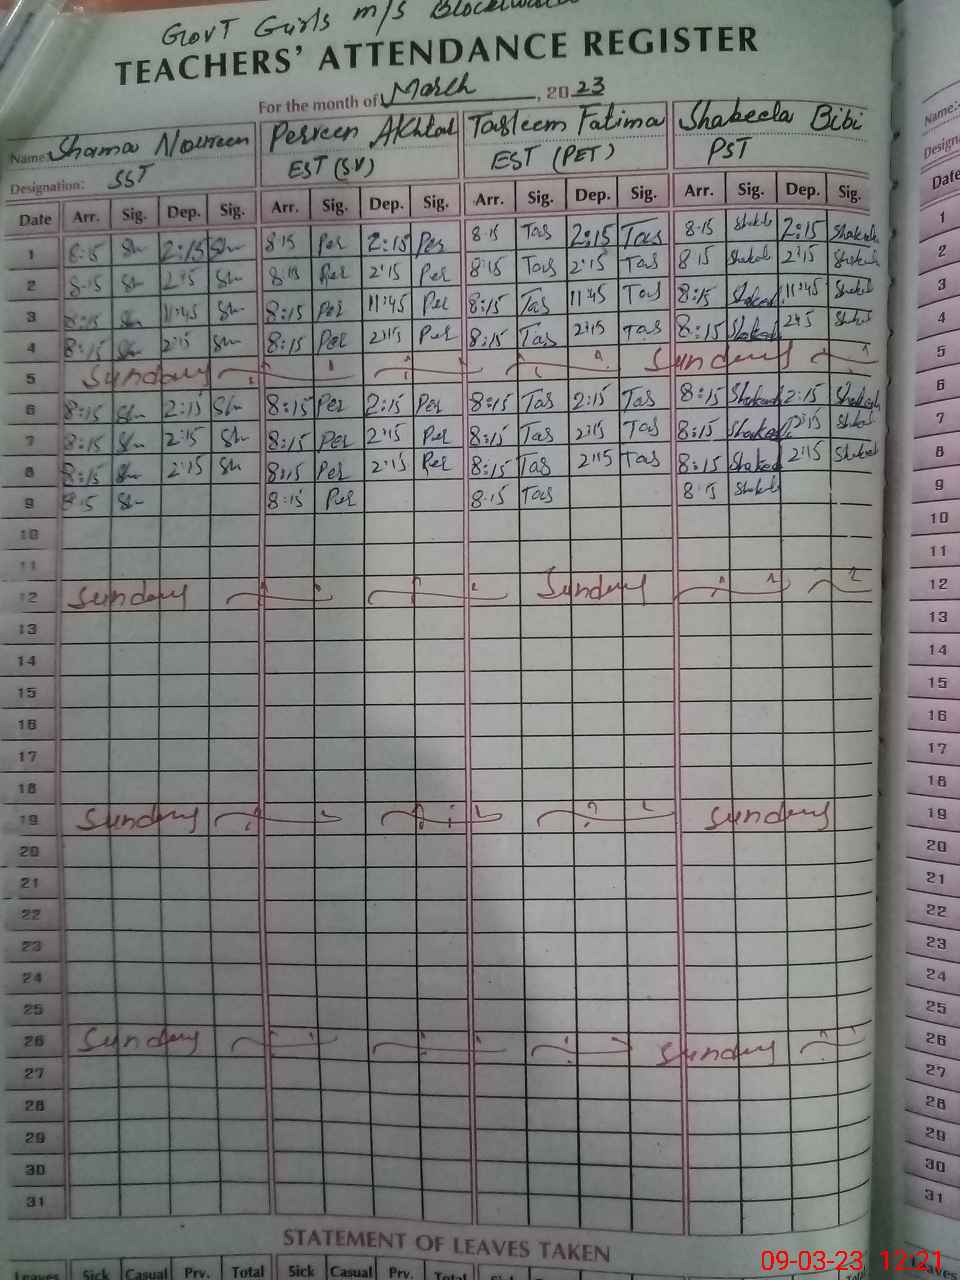 Govt Girls M/S
TEACHERS' ATTENDANCE REGISTER
For the month of March, 2023
Name: Shama Noureen Perveen Akhtar Tasleem Fatima Shakeela Bibi
Designation: SST EST (SV) EST (PET) PST
Date Arr. Sig. Dep. Sig. Arr. Sig. Dep. Sig. Arr. Sig. Dep. Sig. Arr. Sig. Dep. Sig.
1 8:15 Sh 2:15 Sh 8:15 Per 2:15 Per 8:15 Tas 2:15 Tas 8:15 Shakeela 2:15 Shakeela
2 8:15 Sh 2:15 Sh 8:15 Per 2:15 Per 8:15 Tas 2:15 Tas 8:15 Shakeela 2:15 Shakeela
3 8:15 Sh 11:45 Sh 8:15 Per 11:45 Per 8:15 Tas 11:45 Tas 8:15 Shakeela 11:45 Shakeela
4 8:15 Sh 2:15 Sh 8:15 Per 2:15 Per 8:15 Tas 2:15 Tas 8:15 Shakeela 2:15 Shakeela
5 Sunday Sunday
6 8:15 Sh 2:15 Sh 8:15 Per 2:15 Per 8:15 Tas 2:15 Tas 8:15 Shakeela 2:15 Shakeela
7 8:15 Sh 2:15 Sh 8:15 Per 2:15 Per 8:15 Tas 2:15 Tas 8:15 Shakeela 2:15 Shakeela
8 8:15 Sh 2:15 Sh 8:15 Per 2:15 Per 8:15 Tas 2:15 Tas 8:15 Shakeela 2:15 Shakeela
9 8:15 Sh 8:15 Per 8:15 Tas 8:15 Shakeela
10
11
12 Sunday Sunday
13
14
15
16
17
18
19 Sunday Sunday
20
21
22
23
24
25
26 Sunday Sunday
27
28
29
30
31
STATEMENT OF LEAVES TAKEN
Leaves Sick Casual Prv. Total Sick Casual Prv. Total Sick Casual Prv. Total
Name:
Date
1
2
3
4
5
6
7
8
9
10
11
12
13
14
15
16
17
18
19
20
21
22
23
24
25
26
27
28
29
30
31
Leaves
09-03-23 12:21